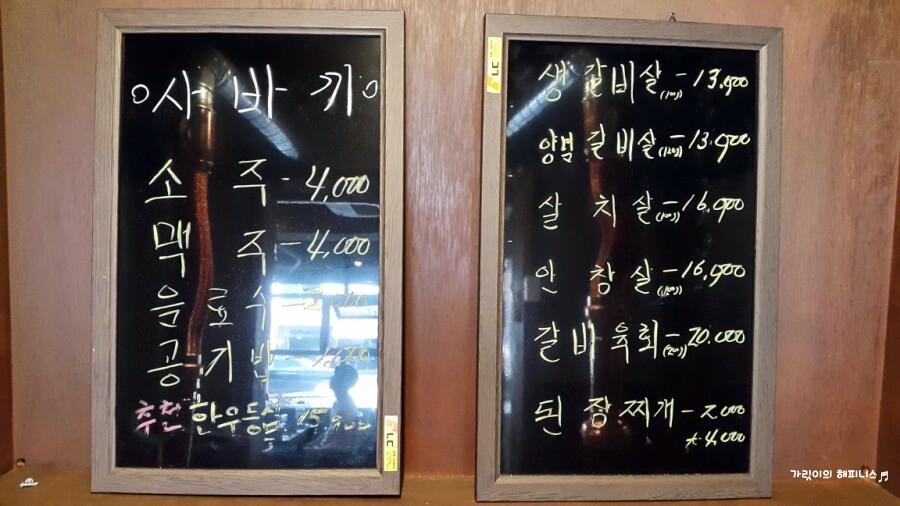 사바기
소주 - 4,000
맥주 - 4,000
음료수 -
공기밥 - 1,000
추천 한우등심 15,900
생갈비살 - 13,900
양념갈비살 - 13,900
살치살 - 16,900
안창살 - 16,900
갈비육회 - 20,000
된장찌개 - 2,000
大 4,000
가맄이의 해피니스♬